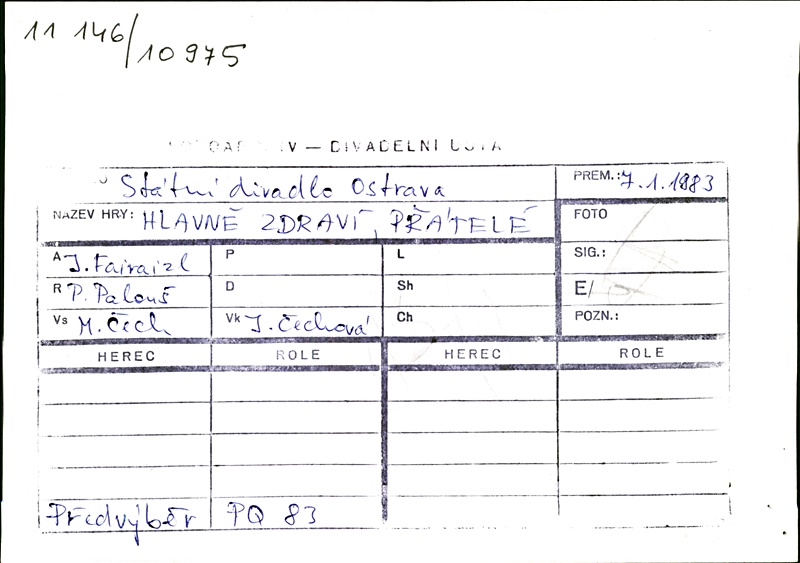 11 146/10975
IV — DIVADELNÍ
Státní divadlo Ostrava PREM.: 7.1.1983
NÁZEV HRY: HLAVNĚ ZDRAVÍ, PŘÁTELÉ FOTO
A J. Fairaizl P L SIG.:
R P. Palouš D Sh E/
Vs M. Čech Vk J. Čechová Ch POZN.:
HEREC ROLE HEREC ROLE
Předvýběr PQ 83